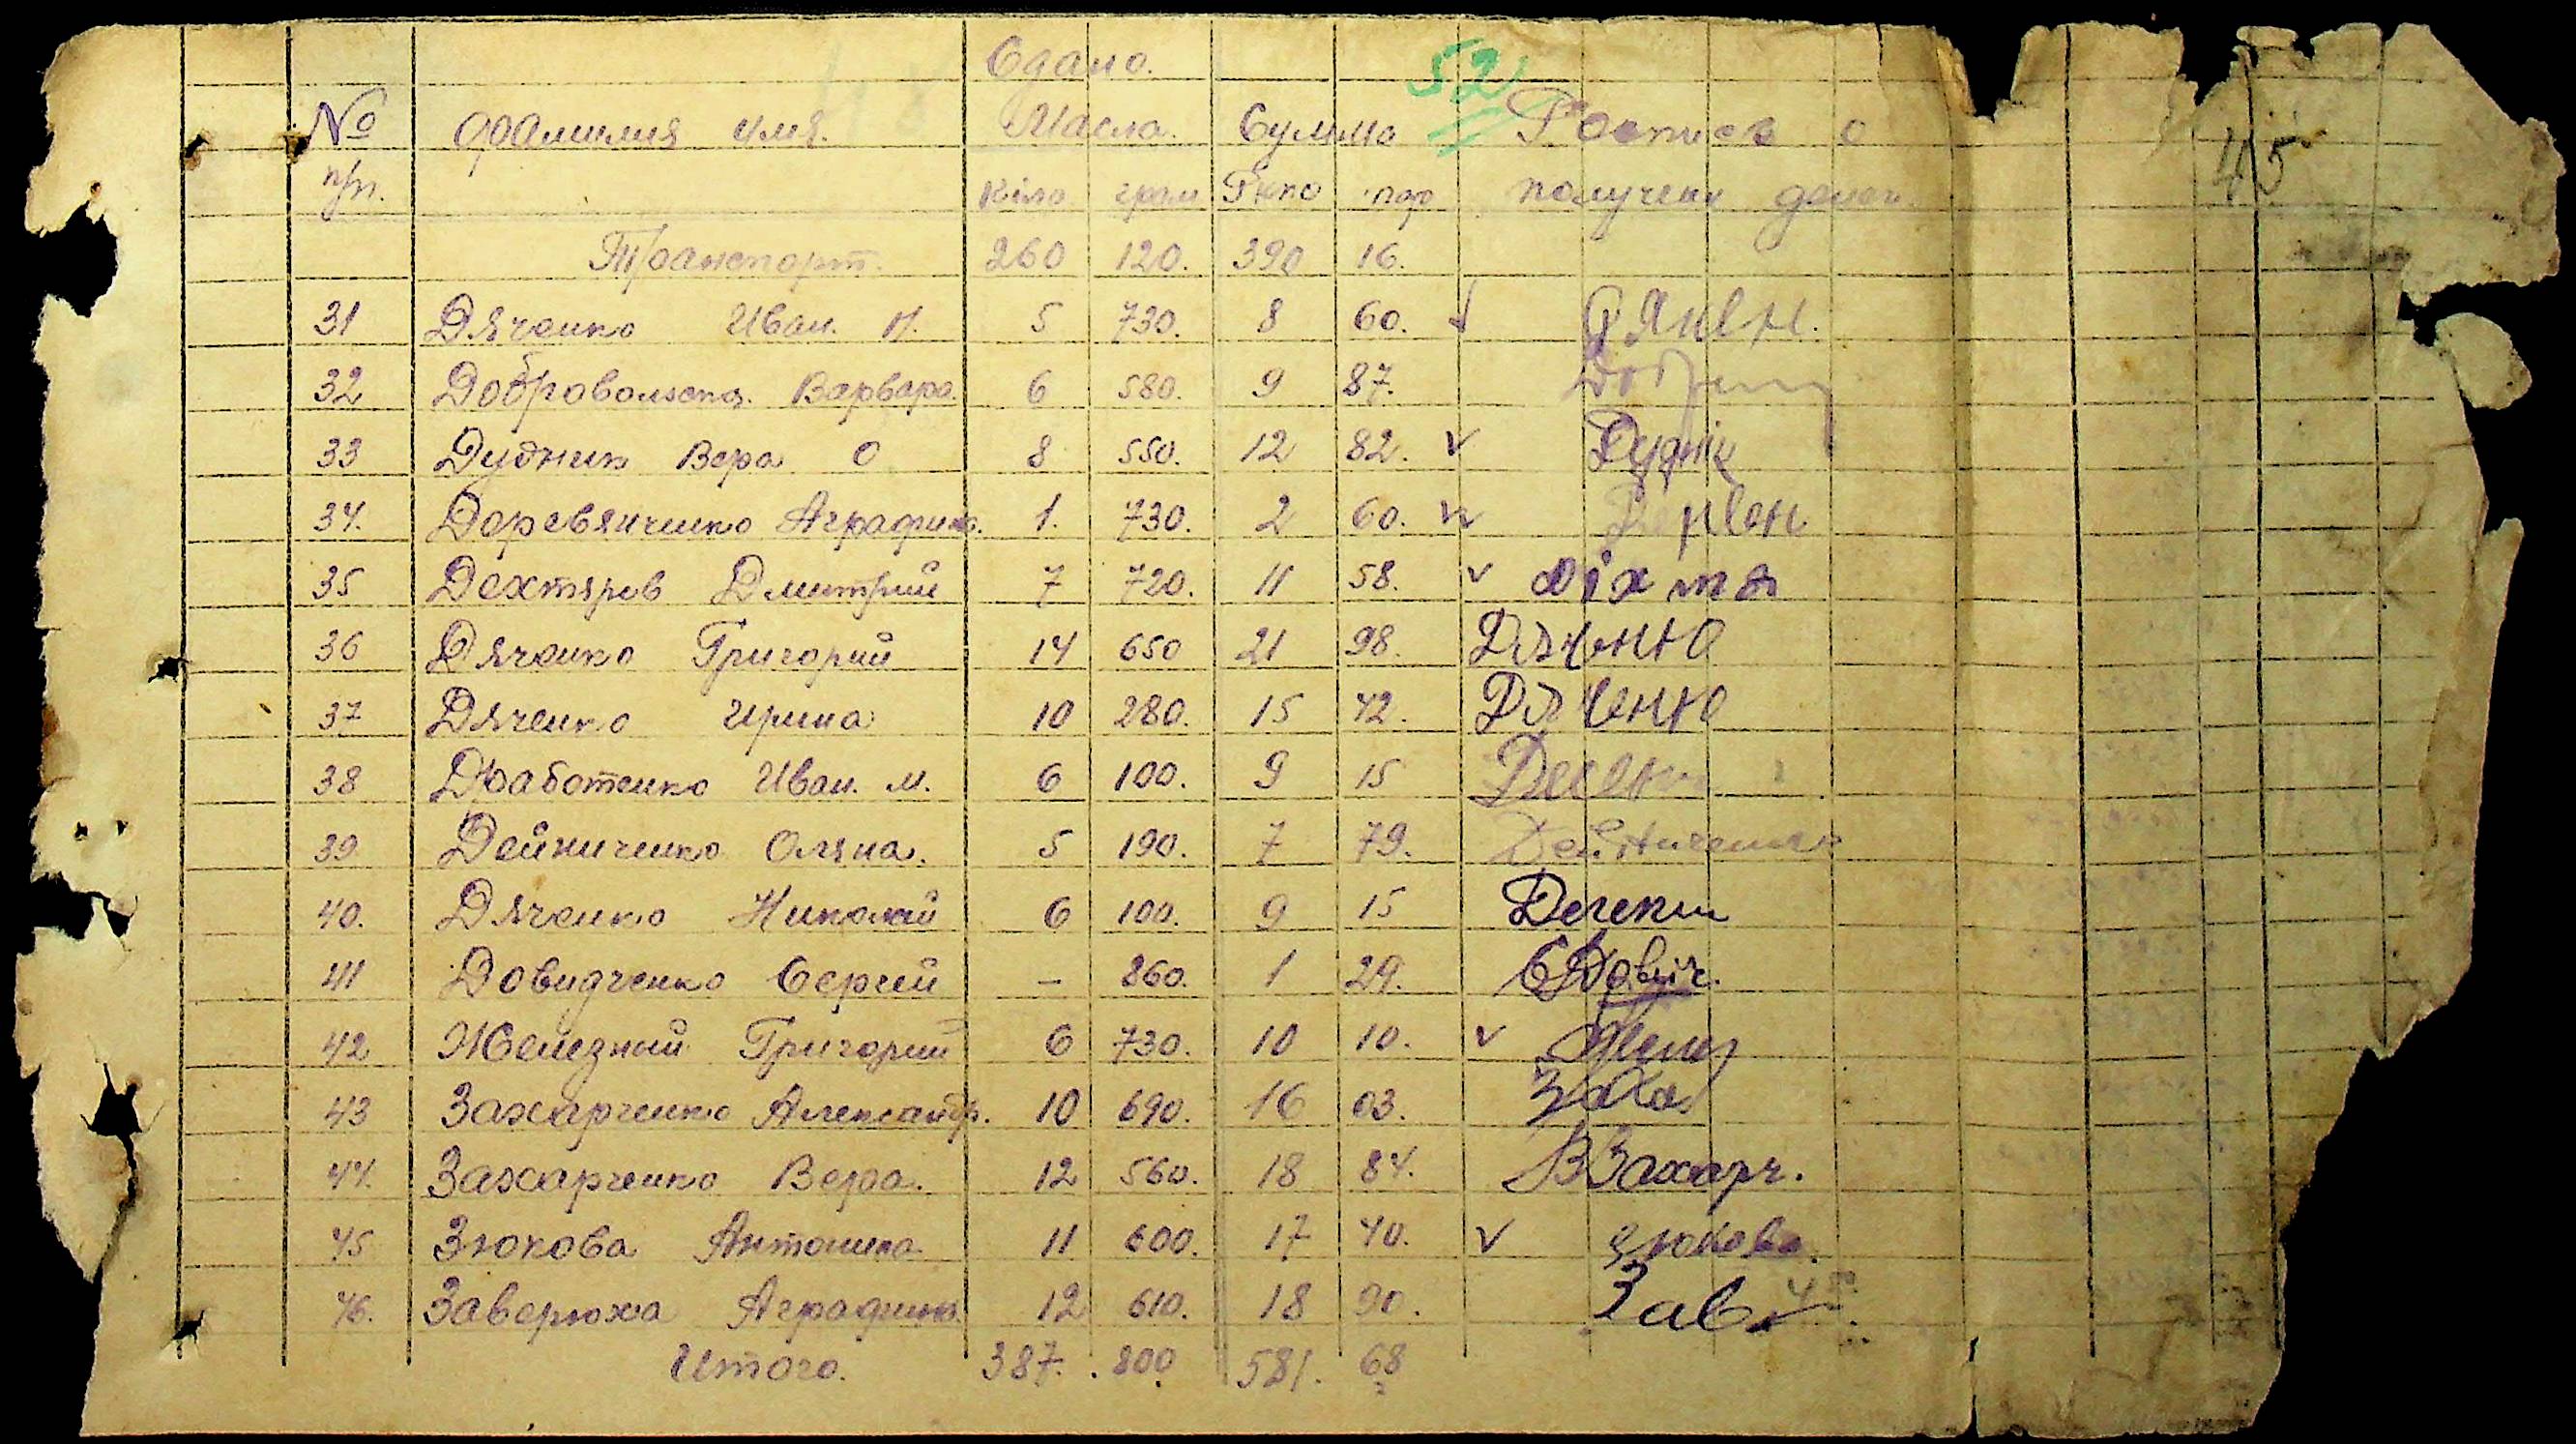 Сдано.
52
№ фамилия имя. Масла. Сумма Роспись о
п/п. Кило грам Ркпо пф получени денег
45
Транспорт. 260 120. 390 16.
31 Дяченко Иван. П. 5 730. 8 60. √
32 Добровольска. Варвара. 6 580. 9 87.
33 Дудник Вера О 8 550. 12 82. √ Дуднік
34. Деревянченко Аграфина. 1. 730. 2 60. √
35 Дехтярев Дмитрий 7 720. 11 58. √ Діхтя
36 Дяченко Григорий 14 650 21 98. Дяченко
37 Дяченко Ирина 10 280. 15 42. Дяченко
38 Дюаботенко Иван. М. 6 100. 9 15
39 Дейниченко Оляна. 5 190. 7 79. Дейниченко
40. Дяченко Николай 6 100. 9 15
41 Довидченко Сергей – 860. 1 29. СДович.
42 Железный Григорий 6 730. 10 10. √
43 Захарченко Александр. 10 690. 16 03. Заха
44. Захарченко Вера. 12 560. 18 84. ВЗахарч.
45 Зюкова Антонина 11 600. 17 40. √ Зюкова.
46. Заверюха Аграфина. 12 610. 18 90. Зав
Итого. 387. 800 581. 68